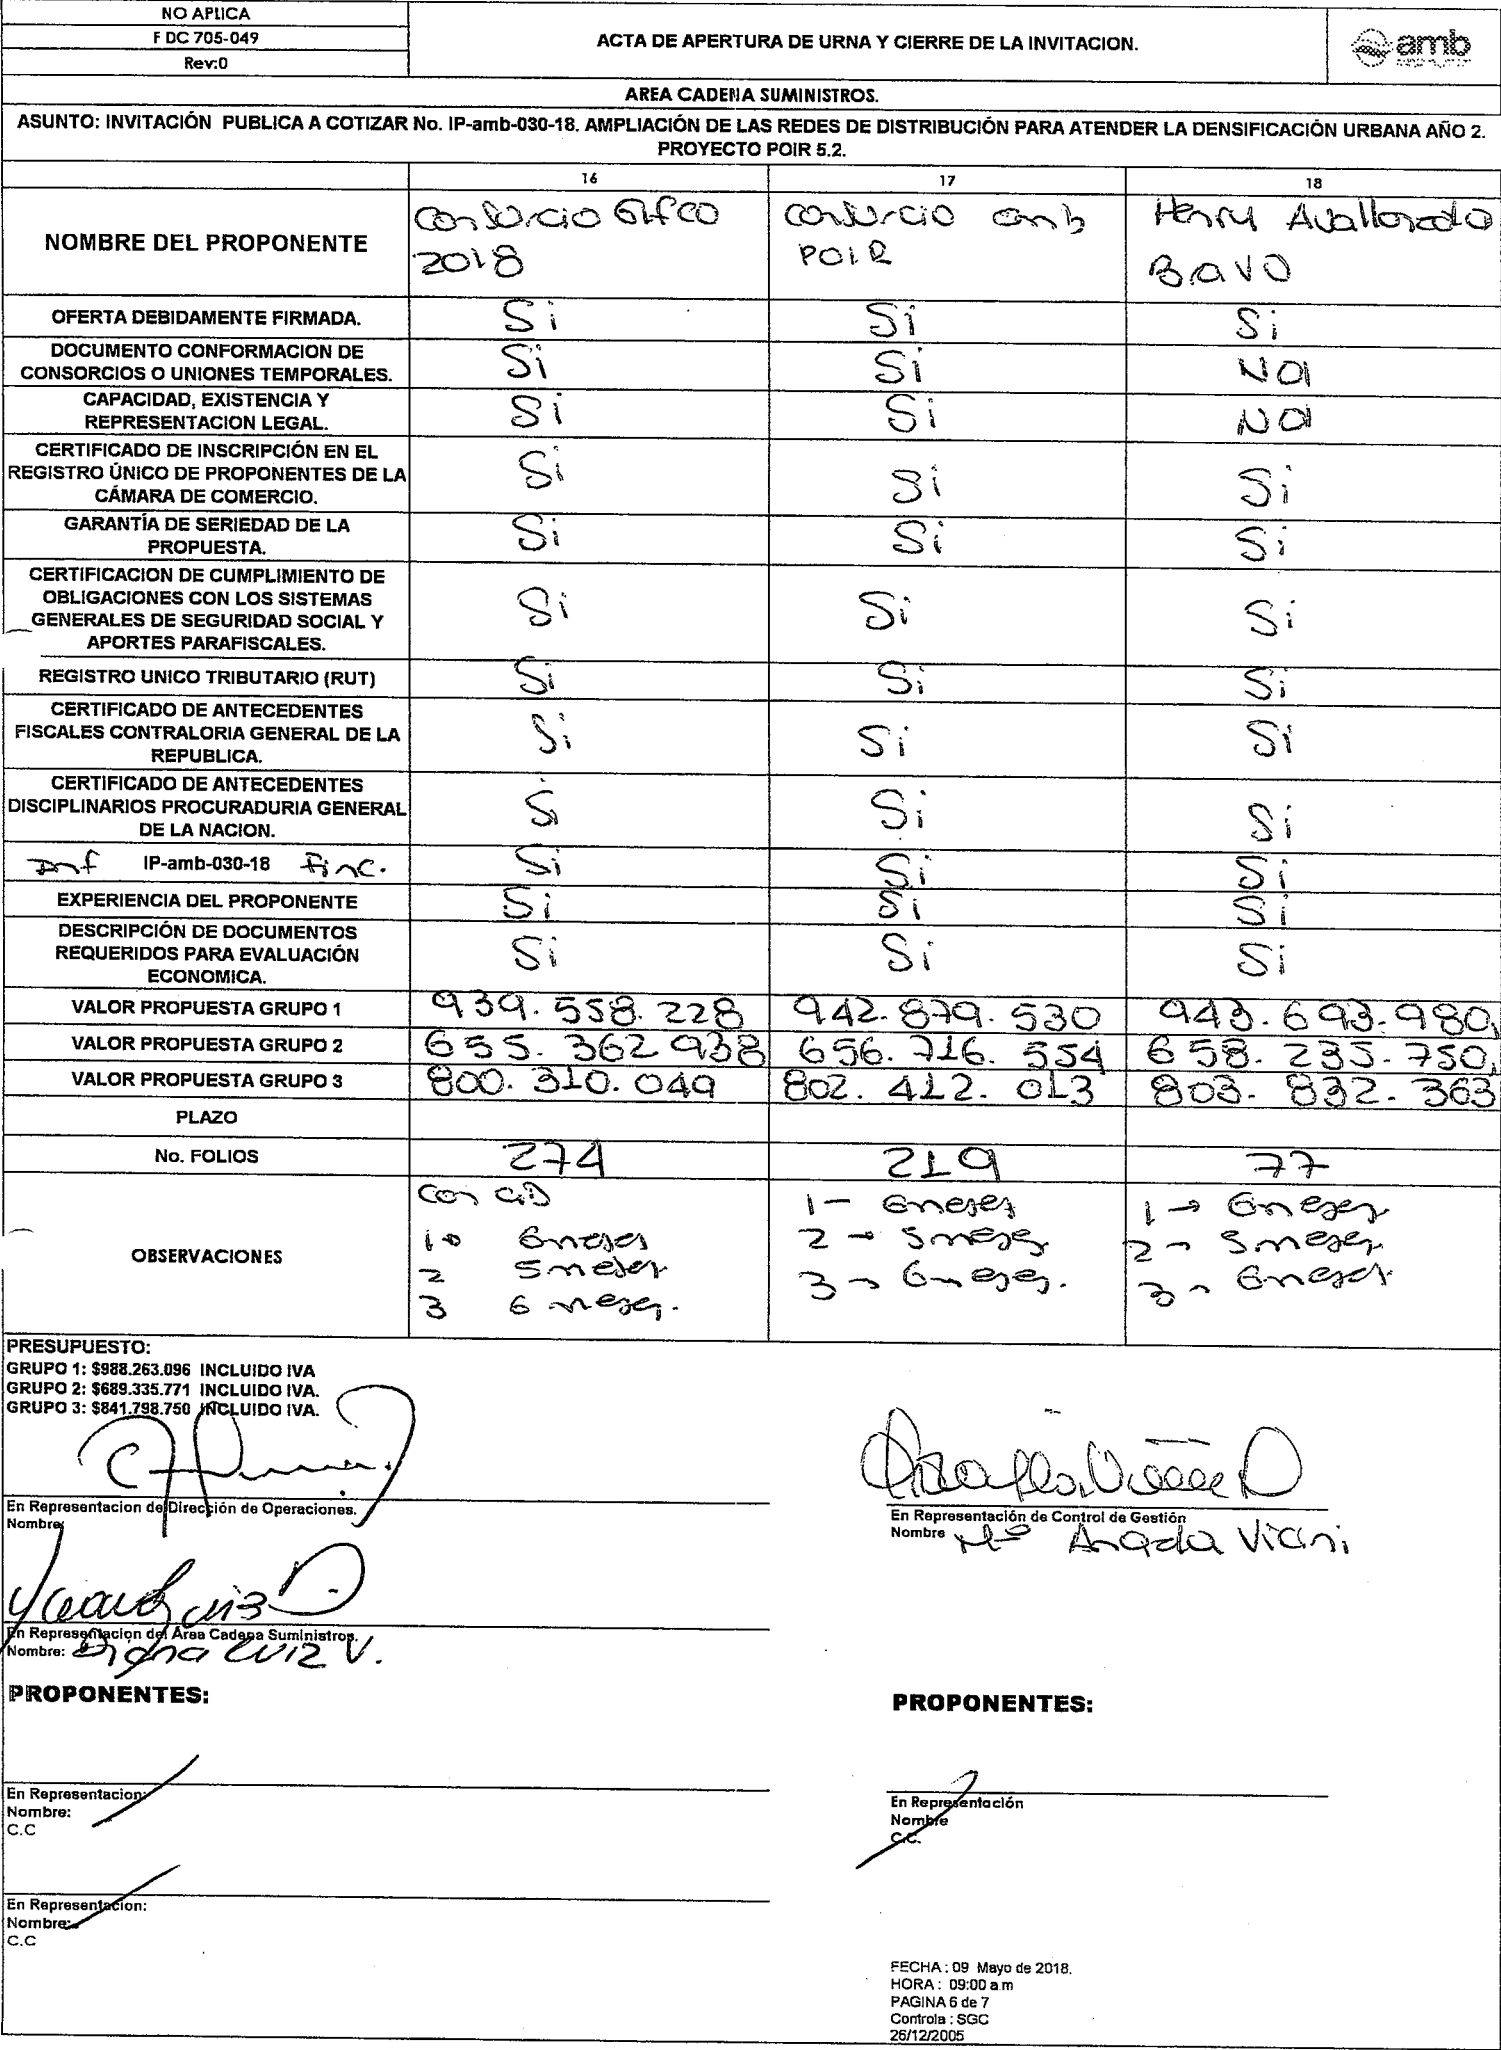 NO APLICA
F DC 705-049
Rev:0
ACTA DE APERTURA DE URNA Y CIERRE DE LA INVITACION.
amb
AREA CADENA SUMINISTROS.
ASUNTO: INVITACIÓN PUBLICA A COTIZAR No. IP-amb-030-18. AMPLIACIÓN DE LAS REDES DE DISTRIBUCIÓN PARA ATENDER LA DENSIFICACIÓN URBANA AÑO 2.
PROYECTO POIR 5.2.
16 17 18
NOMBRE DEL PROPONENTE
consorcio 2018
consorcio amb POIR
Henry
OFERTA DEBIDAMENTE FIRMADA. Si Si Si
DOCUMENTO CONFORMACION DE
CONSORCIOS O UNIONES TEMPORALES. Si Si NO
CAPACIDAD, EXISTENCIA Y
REPRESENTACION LEGAL. Si Si NO
CERTIFICADO DE INSCRIPCIÓN EN EL
REGISTRO ÚNICO DE PROPONENTES DE LA
CÁMARA DE COMERCIO. Si Si Si
GARANTÍA DE SERIEDAD DE LA
PROPUESTA. Si Si Si
CERTIFICACION DE CUMPLIMIENTO DE
OBLIGACIONES CON LOS SISTEMAS
GENERALES DE SEGURIDAD SOCIAL Y
APORTES PARAFISCALES. Si Si Si
REGISTRO UNICO TRIBUTARIO (RUT) Si Si Si
CERTIFICADO DE ANTECEDENTES
FISCALES CONTRALORIA GENERAL DE LA
REPUBLICA. Si Si Si
CERTIFICADO DE ANTECEDENTES
DISCIPLINARIOS PROCURADURIA GENERAL
DE LA NACION. Si Si Si
Inf IP-amb-030-18 Finc. Si Si Si
EXPERIENCIA DEL PROPONENTE Si Si Si
DESCRIPCIÓN DE DOCUMENTOS
REQUERIDOS PARA EVALUACIÓN
ECONOMICA. Si Si Si
VALOR PROPUESTA GRUPO 1 939.558.228 942.879.530 943.693.980,
VALOR PROPUESTA GRUPO 2 655.362 938 656.716.554 658.235.750,
VALOR PROPUESTA GRUPO 3 800.310.049 802.412.013 803.832.363
PLAZO
No. FOLIOS 274 219 77
OBSERVACIONES
con CD
1→ 6 meses
2 5 meses
3 6 meses.
1- 6 meses
2 → 5 meses
3 → 6 meses.
1 → 6 meses
2 → 5 meses
3 → 6 meses
PRESUPUESTO:
GRUPO 1: $988.263.096 INCLUIDO IVA
GRUPO 2: $689.335.771 INCLUIDO IVA.
GRUPO 3: $841.798.750 INCLUIDO IVA.
En Representacion de Dirección de Operaciones.
Nombre:
En Representación de Control de Gestión
Nombre Mª Angela Viani
En Representacion del Área Cadena Suministros.
Nombre: Diana Luiz V.
PROPONENTES:
PROPONENTES:
En Representacion:
Nombre:
C.C
En Representación
Nombre
C.C.
En Representacion:
Nombre:
C.C
FECHA : 09 Mayo de 2018.
HORA : 09:00 a m
PAGINA 6 de 7
Controla : SGC
26/12/2005